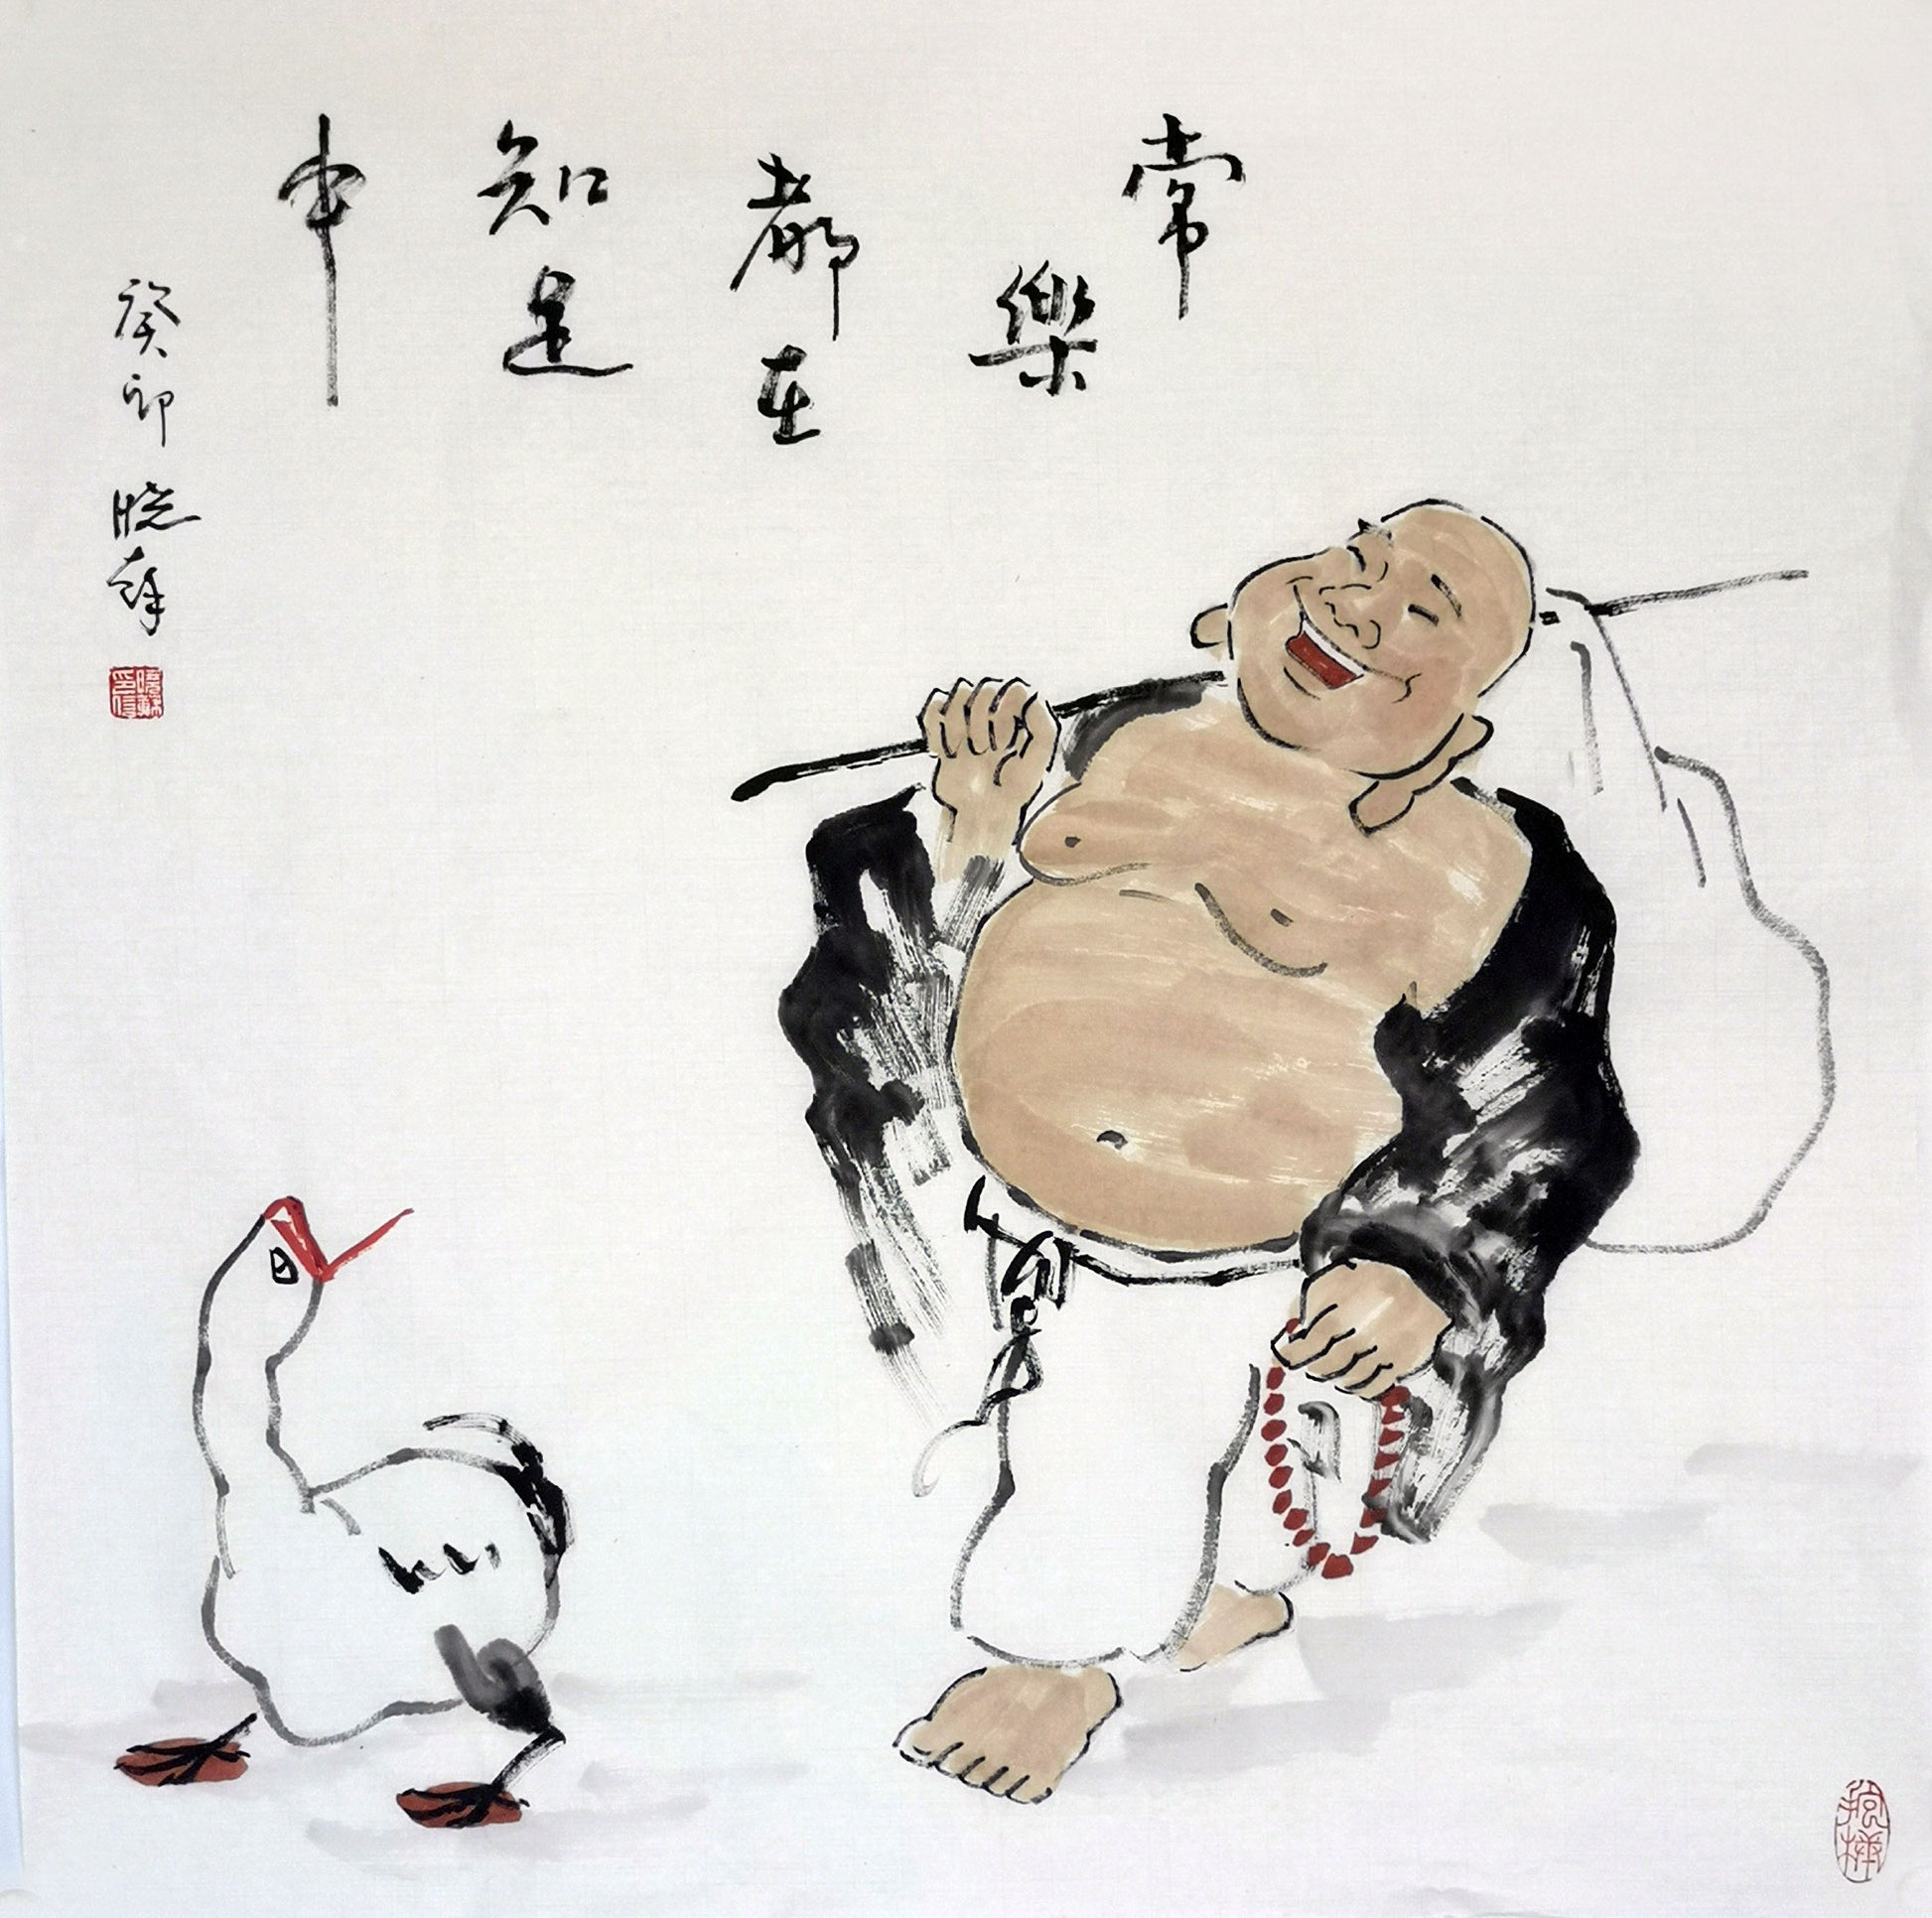 常
樂
都在
知足
中
癸卯
曉